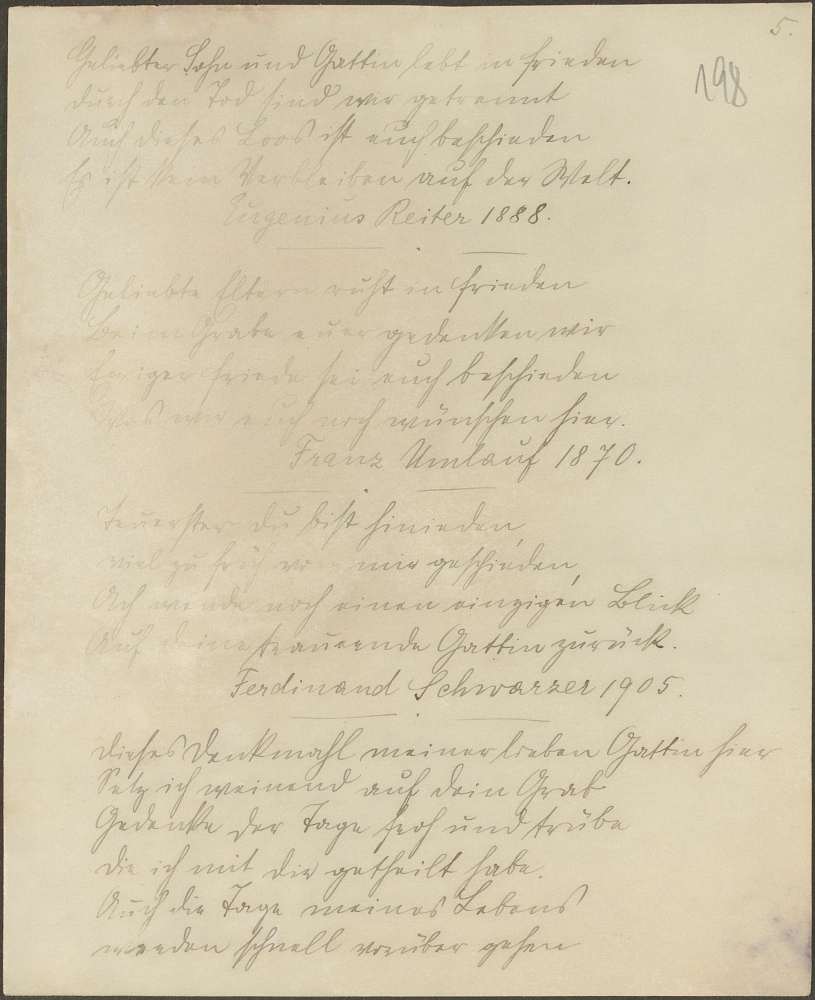 5.
198
Geliebter Sohn und Gattin lebt in frieden
durch den Tod sind wir getrennt
Auch dieses Loos ist euch beschieden
Es ist kein Verbleiben auf der Welt.
Eugenius Reiter 1888.
Geliebte Eltern ruht in frieden
Beim Grabe euer gedenken wir
Ewiger friede sei euch beschieden
Was wir euch noch wünschen hier.
Franz Umlauf 1870.
Teuerster du bist hinieden,
viel zu früh von mir geschieden,
Ach wende noch einen einzigen Blick
Auf deine trauernde Gattin zurück.
Ferdinand Schwarzer 1905.
dieses Denkmahl meiner lieben Gattin hier
Setz ich weinend auf dein Grab
Gedenke der Tage froh und trübe
die ich mit dir getheilt habe.
Auch die Tage meines Lebens
werden schnell vorüber gehen